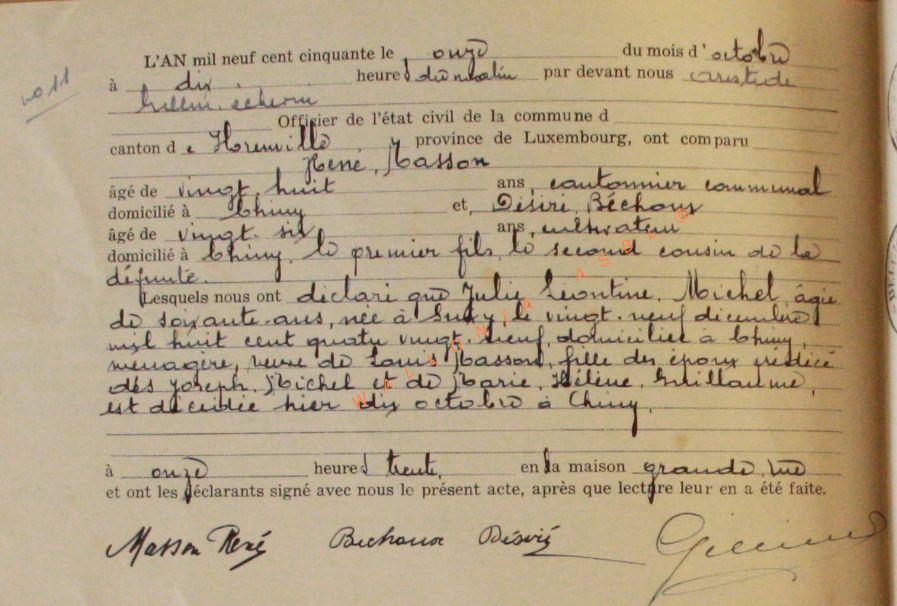 no 11
L'AN mil neuf cent cinquante le onze du mois d'octobre
à dix heures du matin par devant nous
Officier de l'état civil de la commune d
canton de province de Luxembourg, ont comparu
René, Masson
âgé de vingt-huit ans, cantonnier communal
domicilié à Chiny et, Désiré, Béchoux
âgé de vingt-six ans, cultivateur
domicilié à Chiny, le premier fils, le second cousin de la
défunte.
Lesquels nous ont déclaré que Julie Léontine, Michel, âgée
de soixante ans, née à Suxy, le vingt-neuf décembre
mil huit cent quatre vingt-neuf, domiciliée à Chiny,
ménagère, veuve de Louis Masson, fille des époux prédécé
dés Joseph, Michel et de Marie, Hélène, Guillaume,
est décédée hier dix octobre à Chiny,
à onze heures trente, en la maison grande rue
et ont les déclarants signé avec nous le présent acte, après que lecture leur en a été faite.
Masson René Béchoux Désiré